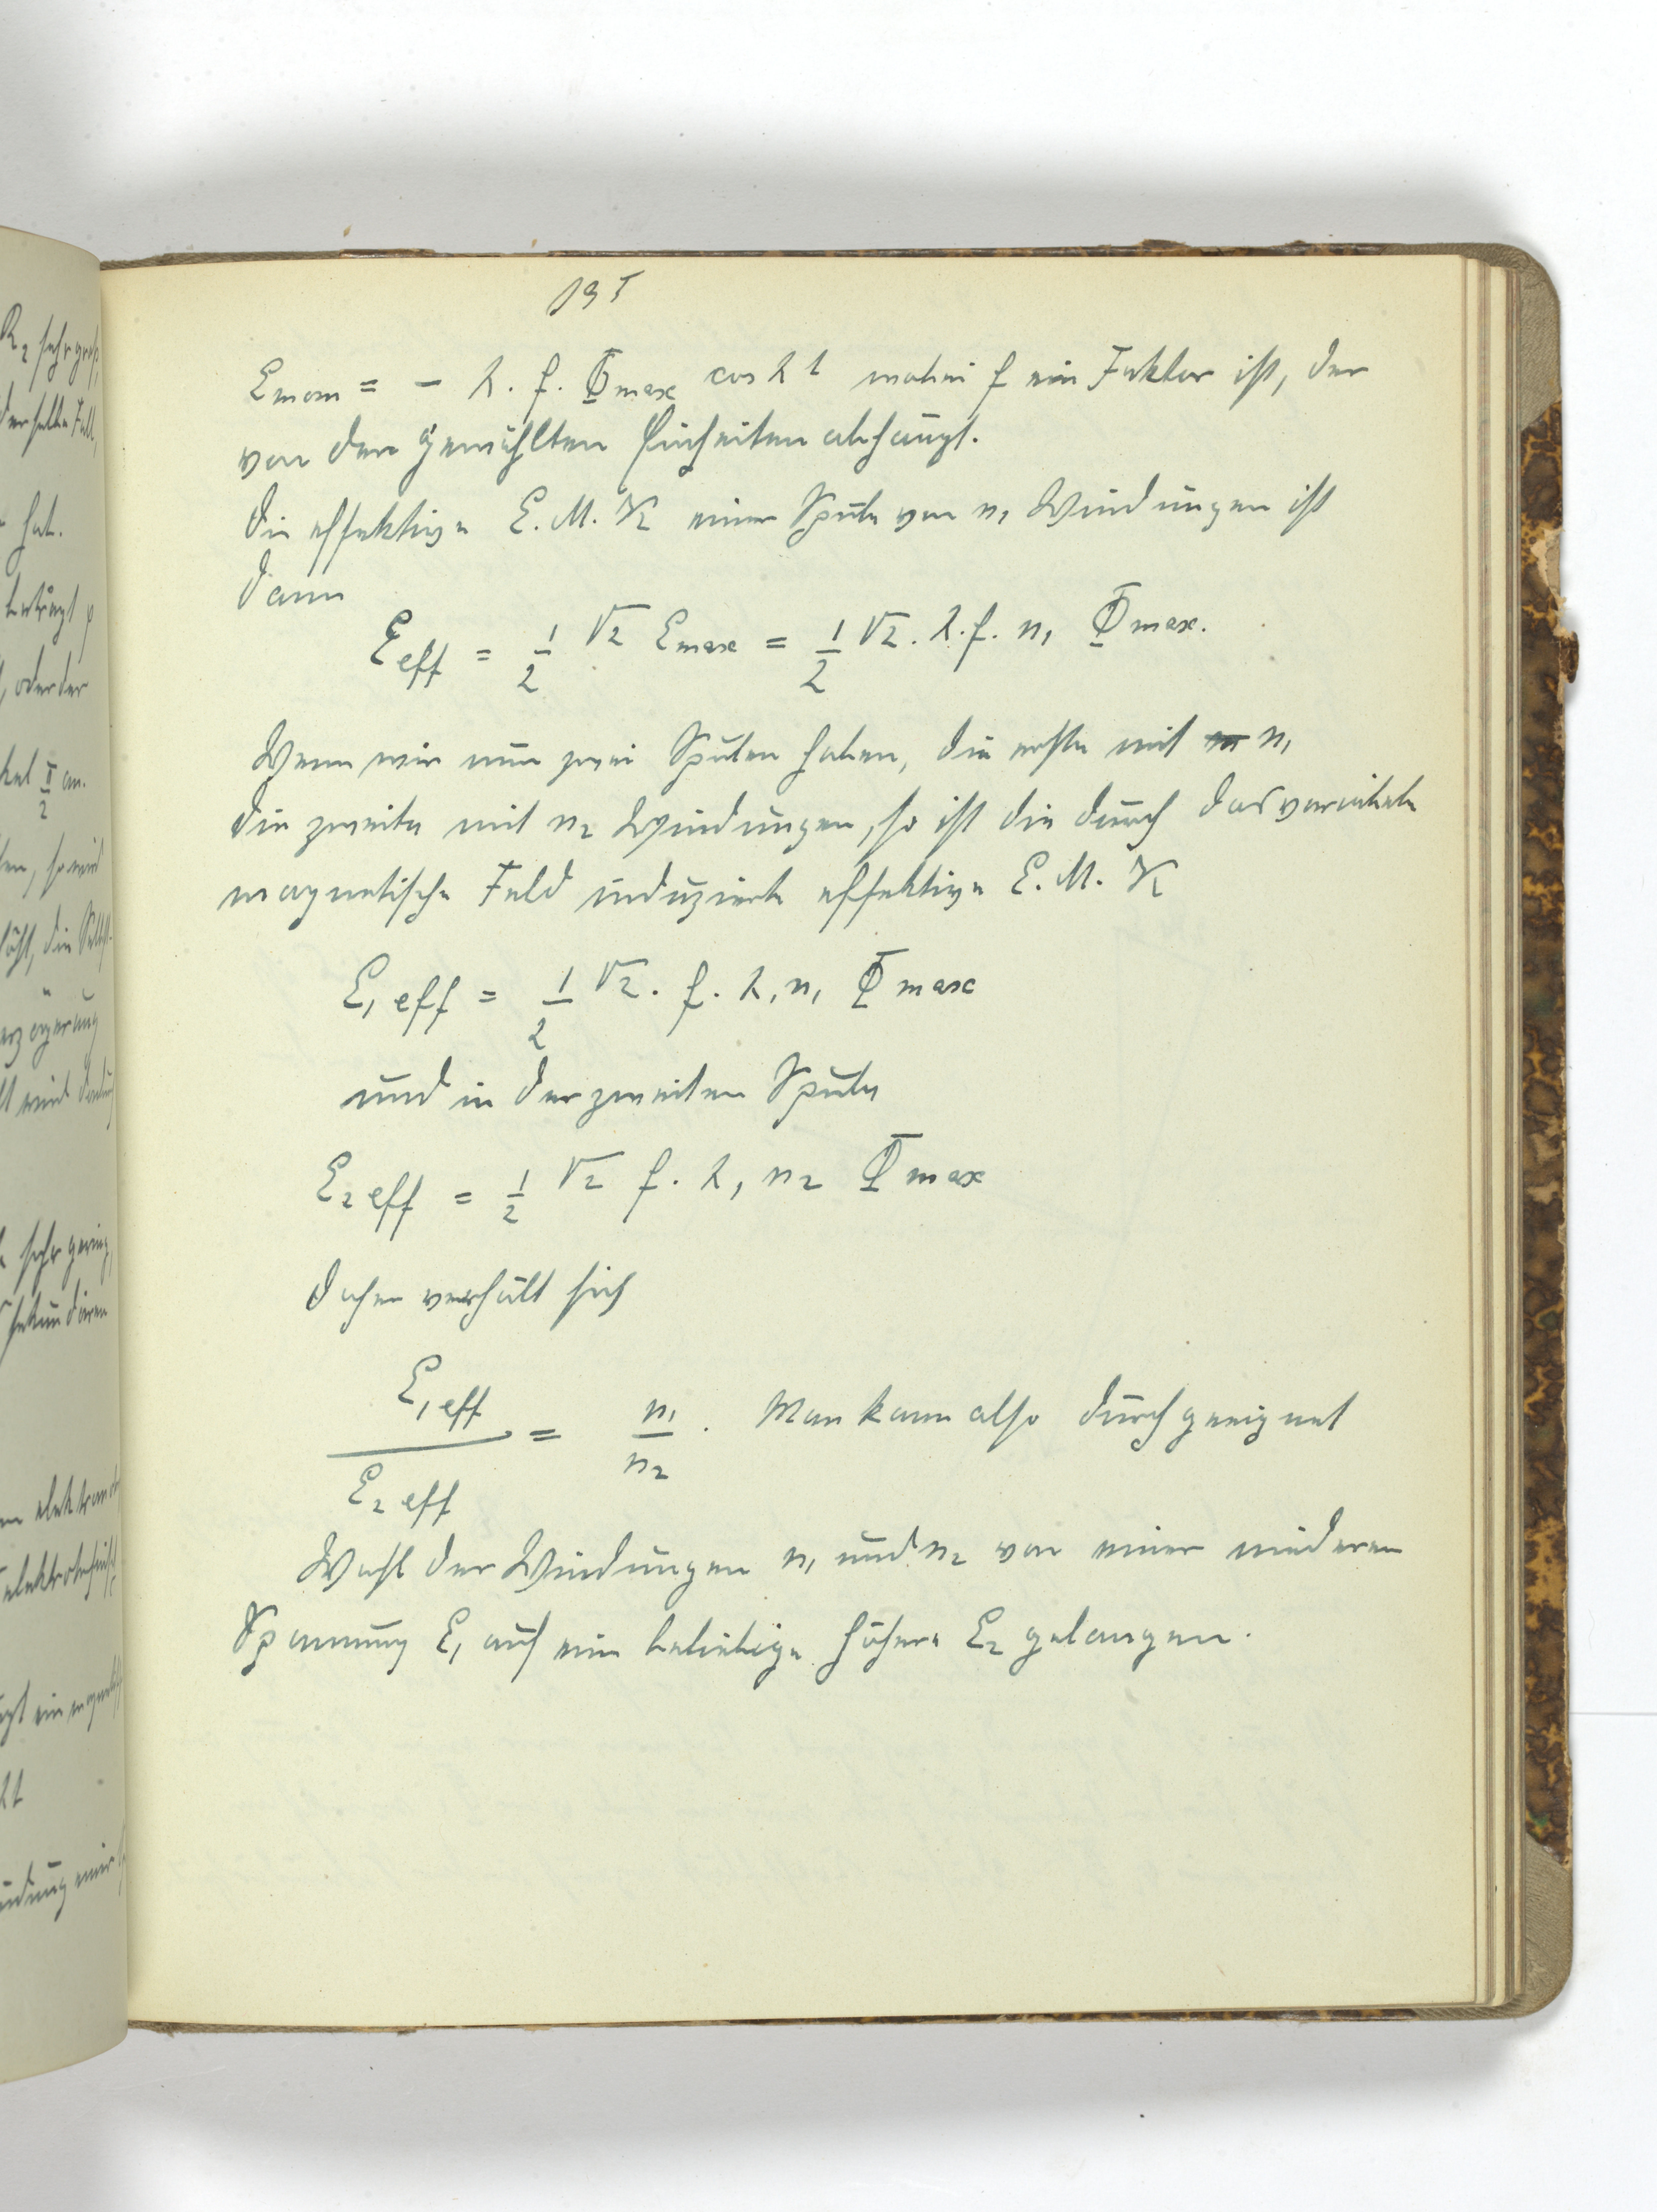 135
Emom = - λ. f. Φmax cos λ t wobei f ein Faktor ist, der
von den gewählten Einheiten abhängt.
Die effektive E. M. K einer Spule von n₁ Windungen ist
dann
Eeff = 1/2 √2 Emax = 1/2 √2. λ. f. n₁ Φmax.
Wenn wir nun zwei Spulen haben, die erste mit n₁
die zweite mit n₂ Windungen, so ist die durch das
magnetische Feld induzierte effektive E. M. K
E₁ eff = 1/2 √2. f. λ, n₁ Φmax
und in der zweiten Spule
E₂ eff = 1/2 √2 f. λ, n₂ Φmax
Daher verhält sich
E₁ eff / E₂ eff = n₁ / n₂. Man kann also durch geeignet
Wahl der Windungen n₁ und n₂ von einer niederen
Spannung E₁ auf eine beliebige höhere E₂ gelangen.